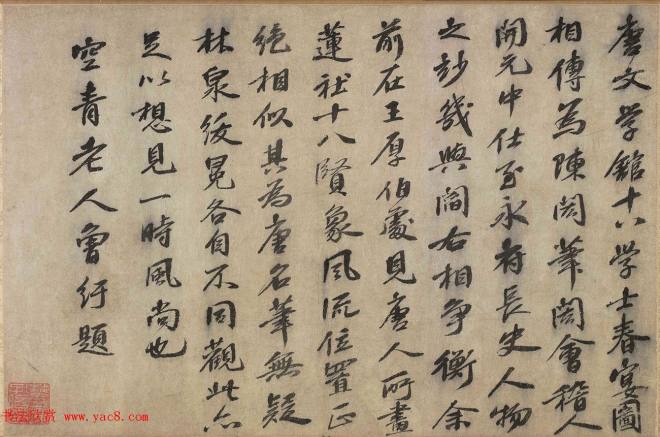 唐文学館十八学士春宴圖
相傳為陳閎筆閎會稽人
開元中仕至永府長史人物
之妙幾與閻右相爭衡余
前在王厚伯處見唐人所畫
蓮社十八賢象風流位置正
絶相似其為唐名筆無疑
林泉綏冕各自不同觀此亦
足以想見一時風尚也
空青老人曾紆題
书法欣赏 www.yac8.com